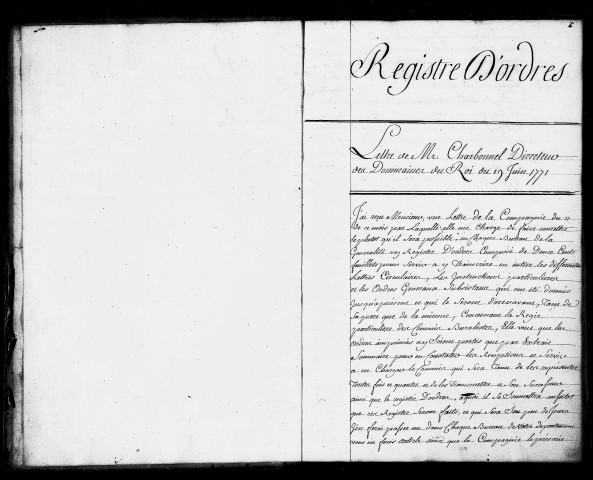 2
Registre D'ordres
Lettre de Mr. Charbonnel Directeur
des Dommaines du Roi du 19 Juin 1771
J'ai reçu Monsieur, une Lettre de la Compagnie du 11
de ce mois par Laquelle elle me Charge de faire remettre
le plutot qu'il sera possible, en Chaque Bureau de la
Generalité un Registre D'ordres Composé de Deux Cents
feuillets pour servir a y Transcrire en entier les differentes
Lettres Circulaires, Les Instructions particulieres
et les Ordres Generaux subsistans qui ont été donnés
Jusqu'apresent et qui le seront d'oresnavant, Tant de
Sa part que de la mienne, Concernant la Regie
particuliere des Commis Buralistes, Elle veut que les
Ordres imprimés n'y soient portés que par Extrait
Sommaire pour en Constater les Receptions et Service
a en Charger le Commis qui sera Tenu de les representer
toutes fois et quantes et de les Transmettre a son Successeur
ainsi que le registre D'ordres, a quoi il se Soumettra aussitot
que ces Registres seront faits, ce qui sera sous peu de jours
J'en ferai passer un dans Chaque Bureau de votre departement
vous en ferés article ainsi que la Compagnie le prescrit